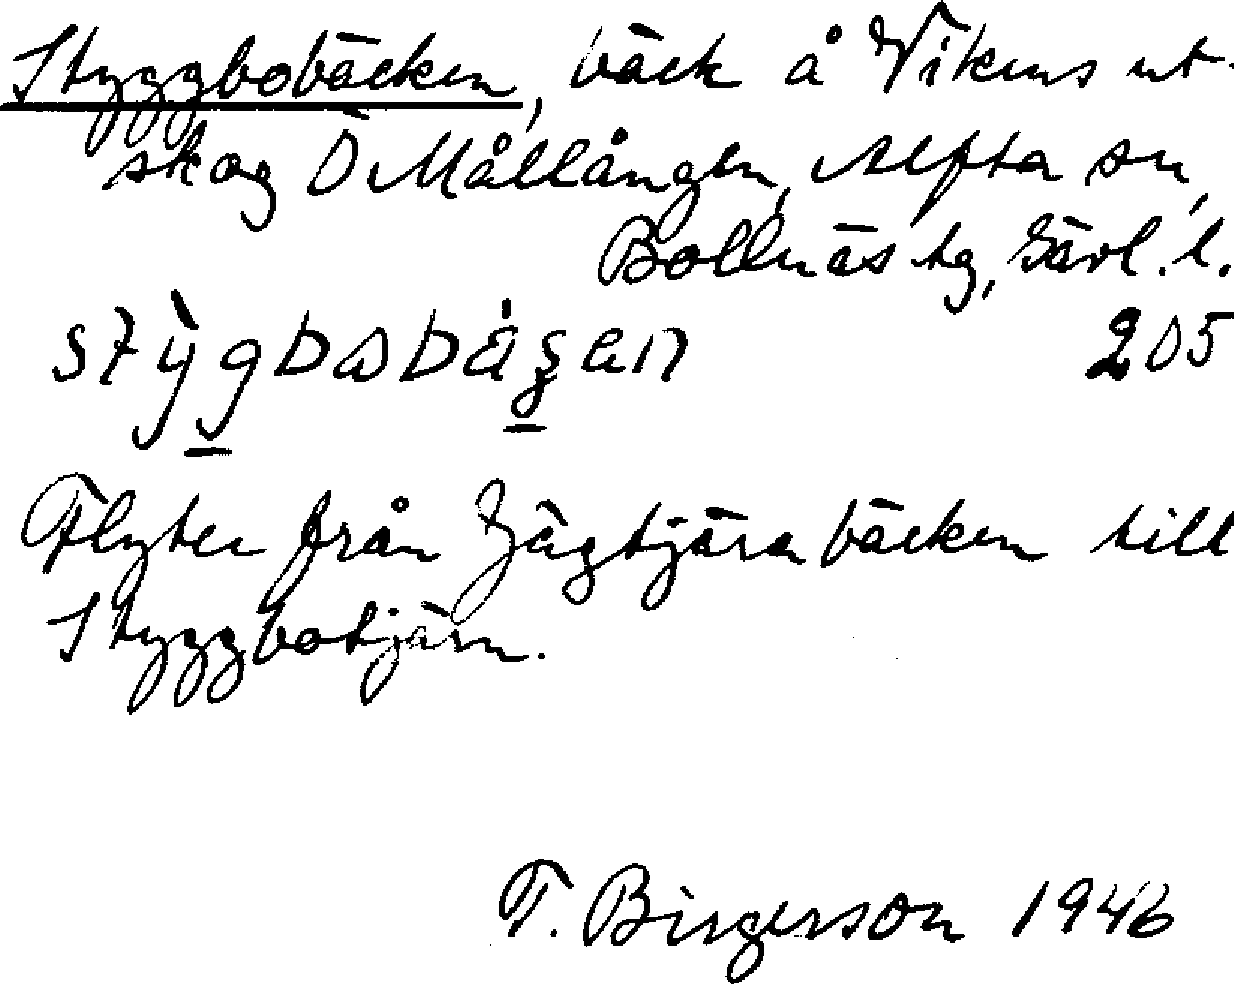 Styggbobäcken, bäck å Vikens ut-
skog Ö Mållången, Alfta sn,
Bollnäs tg, Gävl. l.
205
Flyter från Lågtjärnbäcken till
Styggbotjärn.
T. Birgerson 1946